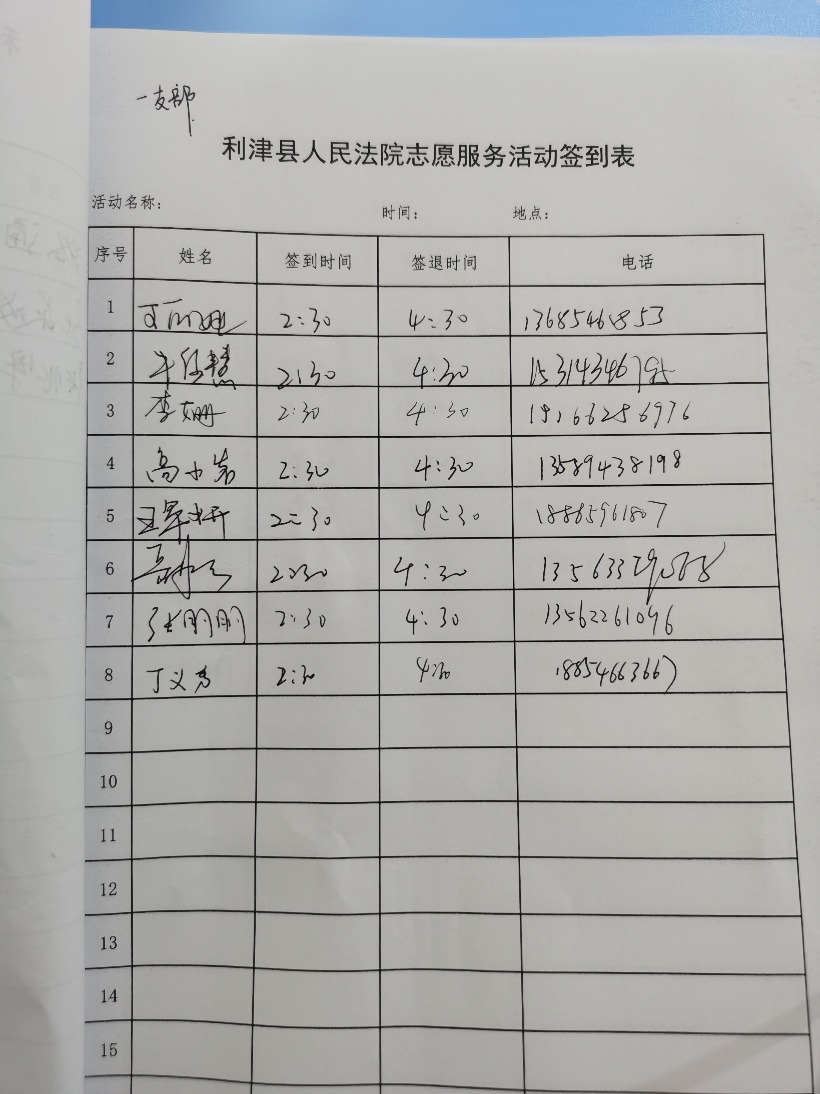 一支部
利津县人民法院志愿服务活动签到表
活动名称： 时间： 地点：
序号 姓名 签到时间 签退时间 电话
1 2:30 4:30 13685461853
2 2:30 4:30 15314346795
3 李姗 2:30 4:30
4 高小岩 2:30 4:30 13589438198
5 2:30 4:30 18865961807
6 2:30 4:30
7 张朋朋 2:30 4:30 13562261096
8 丁义芳 2:30 4:30 18854663667
9
10
11
12
13
14
15